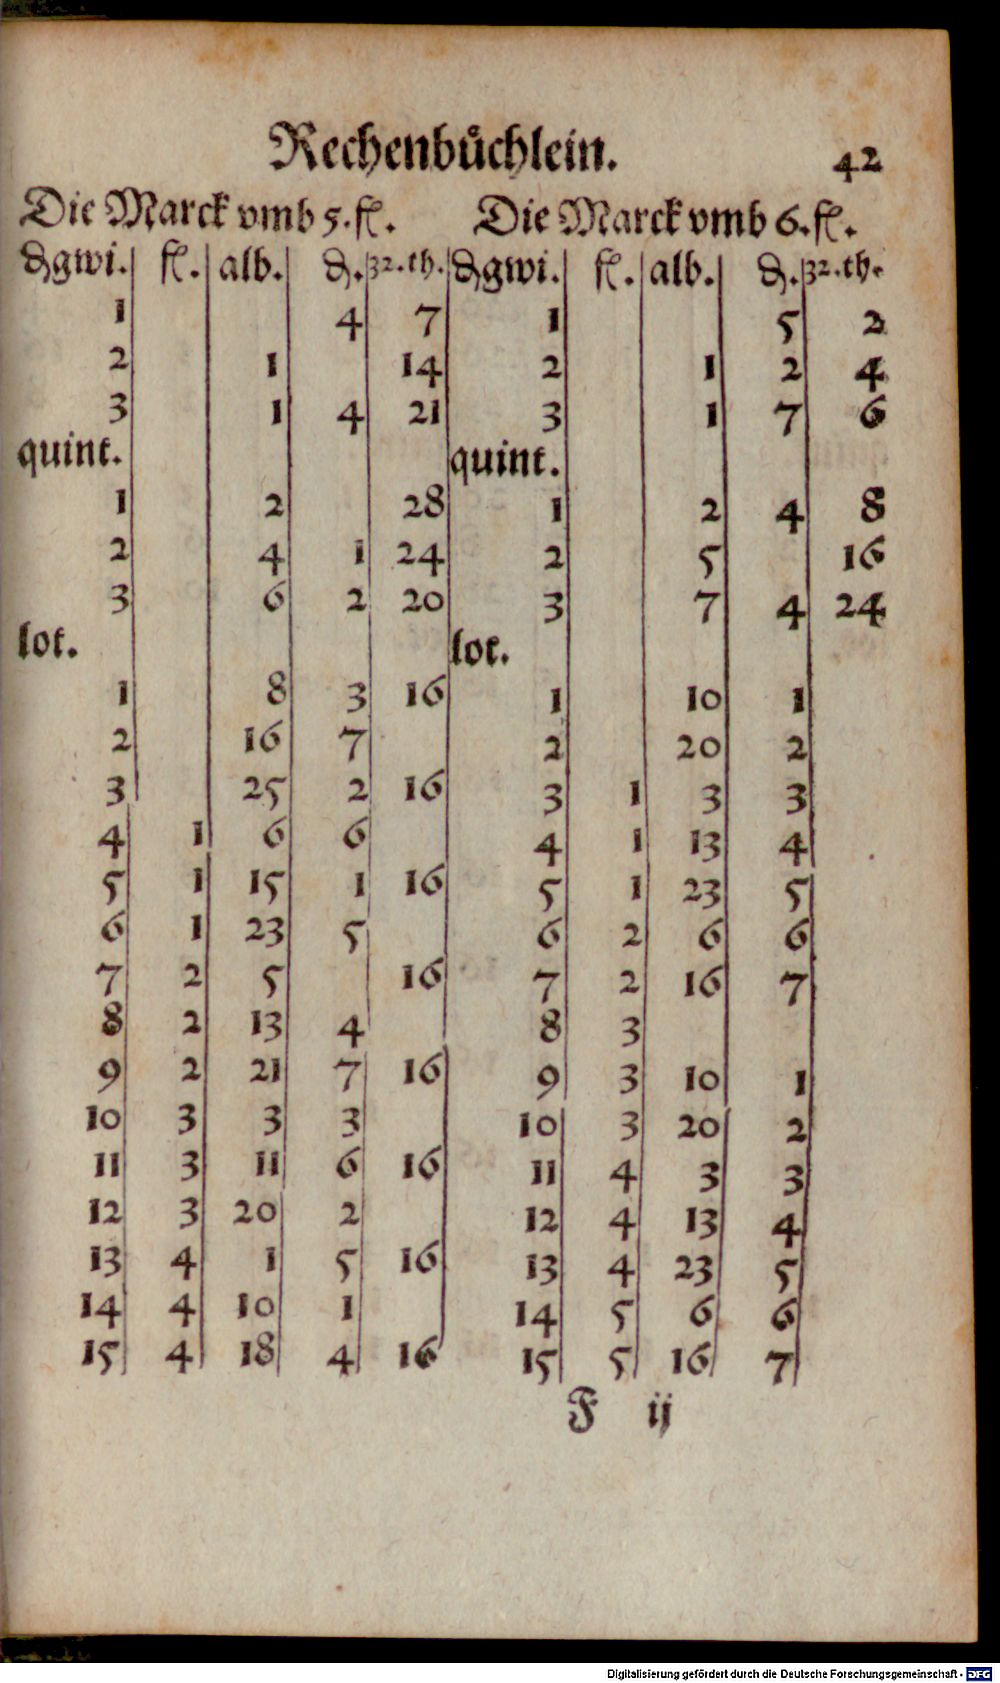 Rechenbůchlein. 42
Die Marck vmb 5. fl. Die Marck vmb 6. fl.
₰gwi. fl. alb. ₰. 32.th. ₰gwi. fl. alb. ₰. 32.th.
1 4 7 1 5 2
2 1 14 2 1 2 4
3 1 4 21 3 1 7 6
quint. quint.
1 2 28 1 2 4 8
2 4 1 24 2 5 16
3 6 2 20 3 7 4 24
lot. lot.
1 8 3 16 1 10 1
2 16 7 2 20 2
3 25 2 16 3 1 3 3
4 1 6 6 4 1 13 4
5 1 15 1 16 5 1 23 5
6 1 23 5 6 2 6 6
7 2 5 16 7 2 16 7
8 2 13 4 8 3
9 2 21 7 16 9 3 10 1
10 3 3 3 10 3 20 2
11 3 11 6 16 11 4 3 3
12 3 20 2 12 4 13 4
13 4 1 5 16 13 4 23 5
14 4 10 1 14 5 6 6
15 4 18 4 16 15 5 16 7
F ij
Digitalisierung gefördert durch die Deutsche Forschungsgemeinschaft - DFG